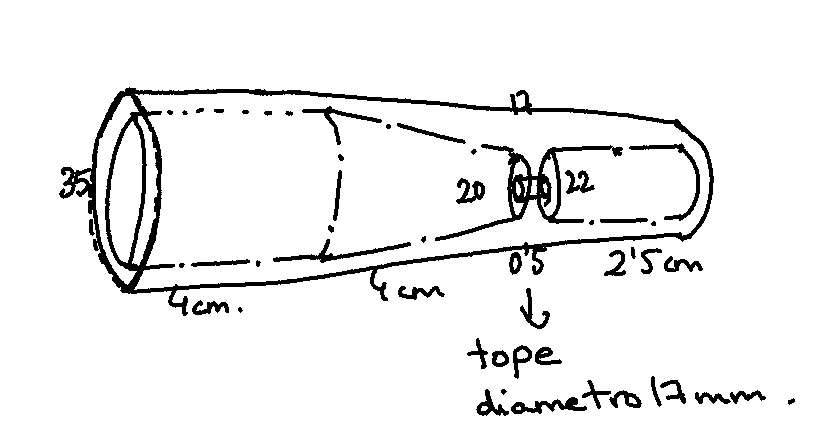 17
35
20
22
4cm.
4cm
0'5
2'5cm
tope
diametro 17mm.